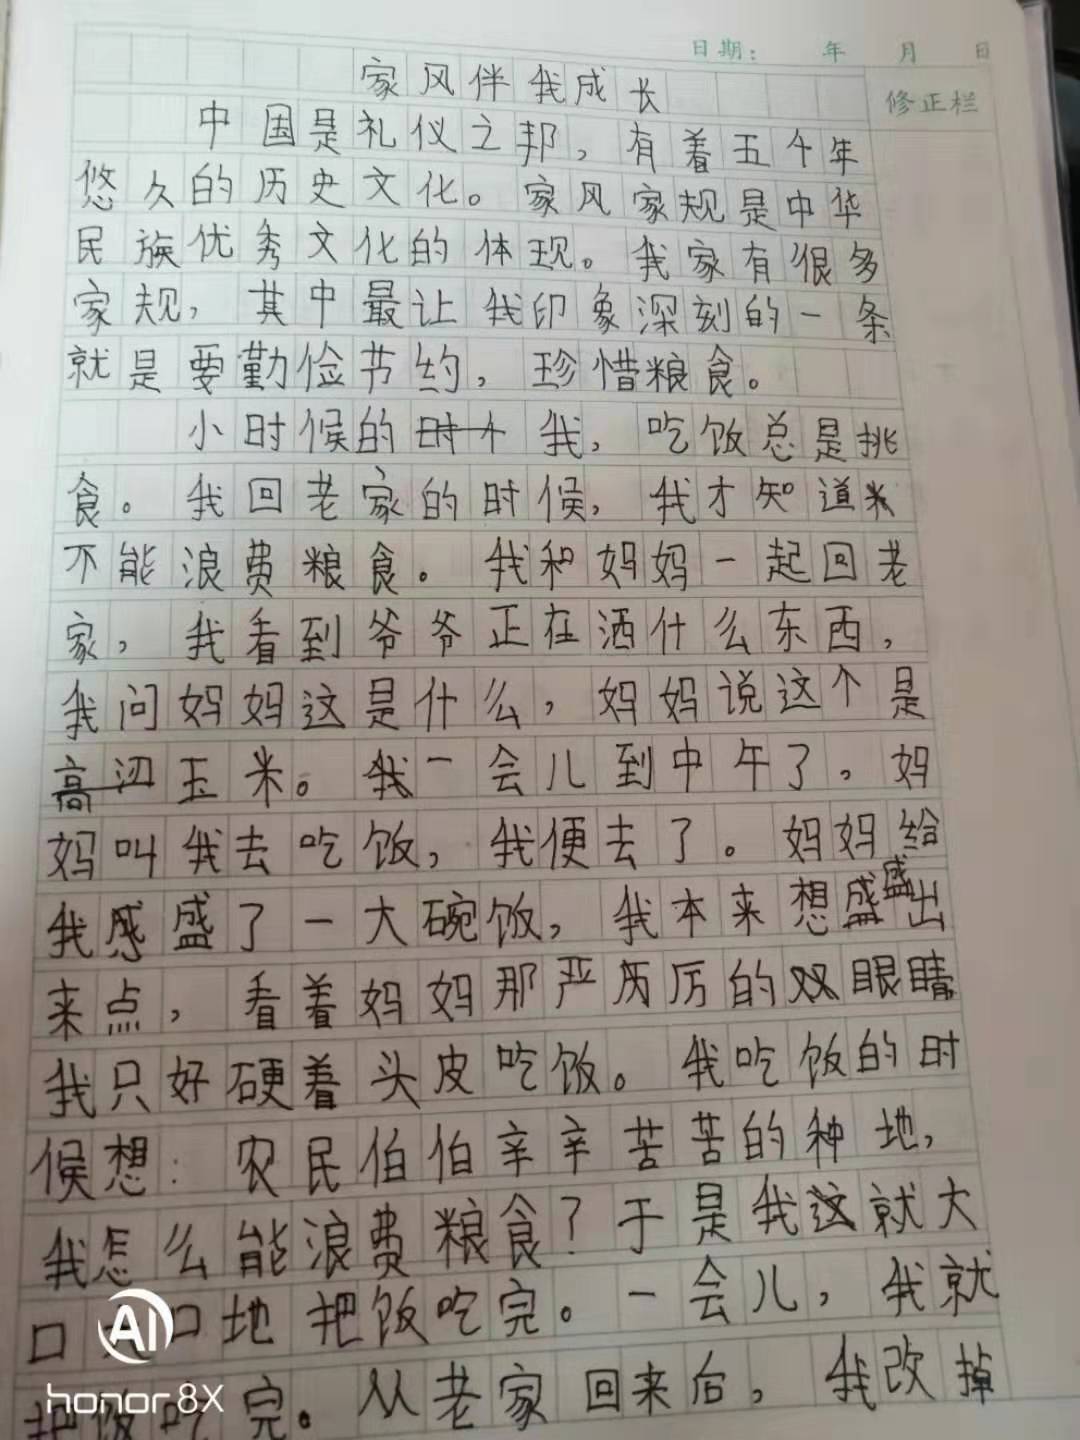 日期： 年 月 日
修正栏
家风伴我成长
中国是礼仪之邦，有着五千年
悠久的历史文化。家风家规是中华
民族优秀文化的体现。我家有很多
家规，其中最让我印象深刻的一条
就是要勤俭节约，珍惜粮食。
小时候的我，吃饭总是挑
食。我回老家的时候，我才知道
不能浪费粮食。我和妈妈一起回老
家，我看到爷爷正在洒什么东西，
我问妈妈这是什么，妈妈说这个是
玉米。一会儿到中午了。妈
妈叫我去吃饭，我便去了。妈妈给
我盛了一大碗饭，我本来想盛出
来点，看着妈妈那严厉的双眼睛
我只好硬着头皮吃饭。我吃饭的时
候想：农民伯伯辛辛苦苦的种地，
我怎么能浪费粮食？于是我就大
口大口地把饭吃完。一会儿，我就
把饭吃完。从老家回来后，我改掉
AI
honor 8X